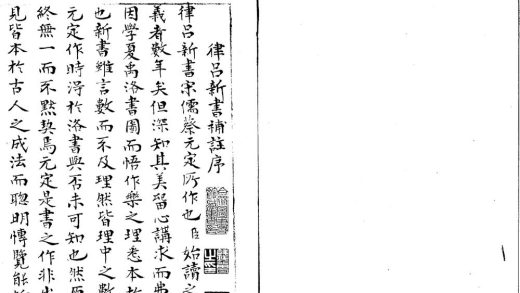 律呂新書補註序
律呂新書宋儒蔡元定所作也臣始讀之
義者數年矣但深知其美留心講求而弗
因學夏禹洛書圖而悟作樂之理悉本於
也新書雖言數而不及理然皆理中之數
元定作時得於洛書與否未可知也然
終無一而不黙契焉元定是書之作非
見皆本於古人之成法而聰明博覽能